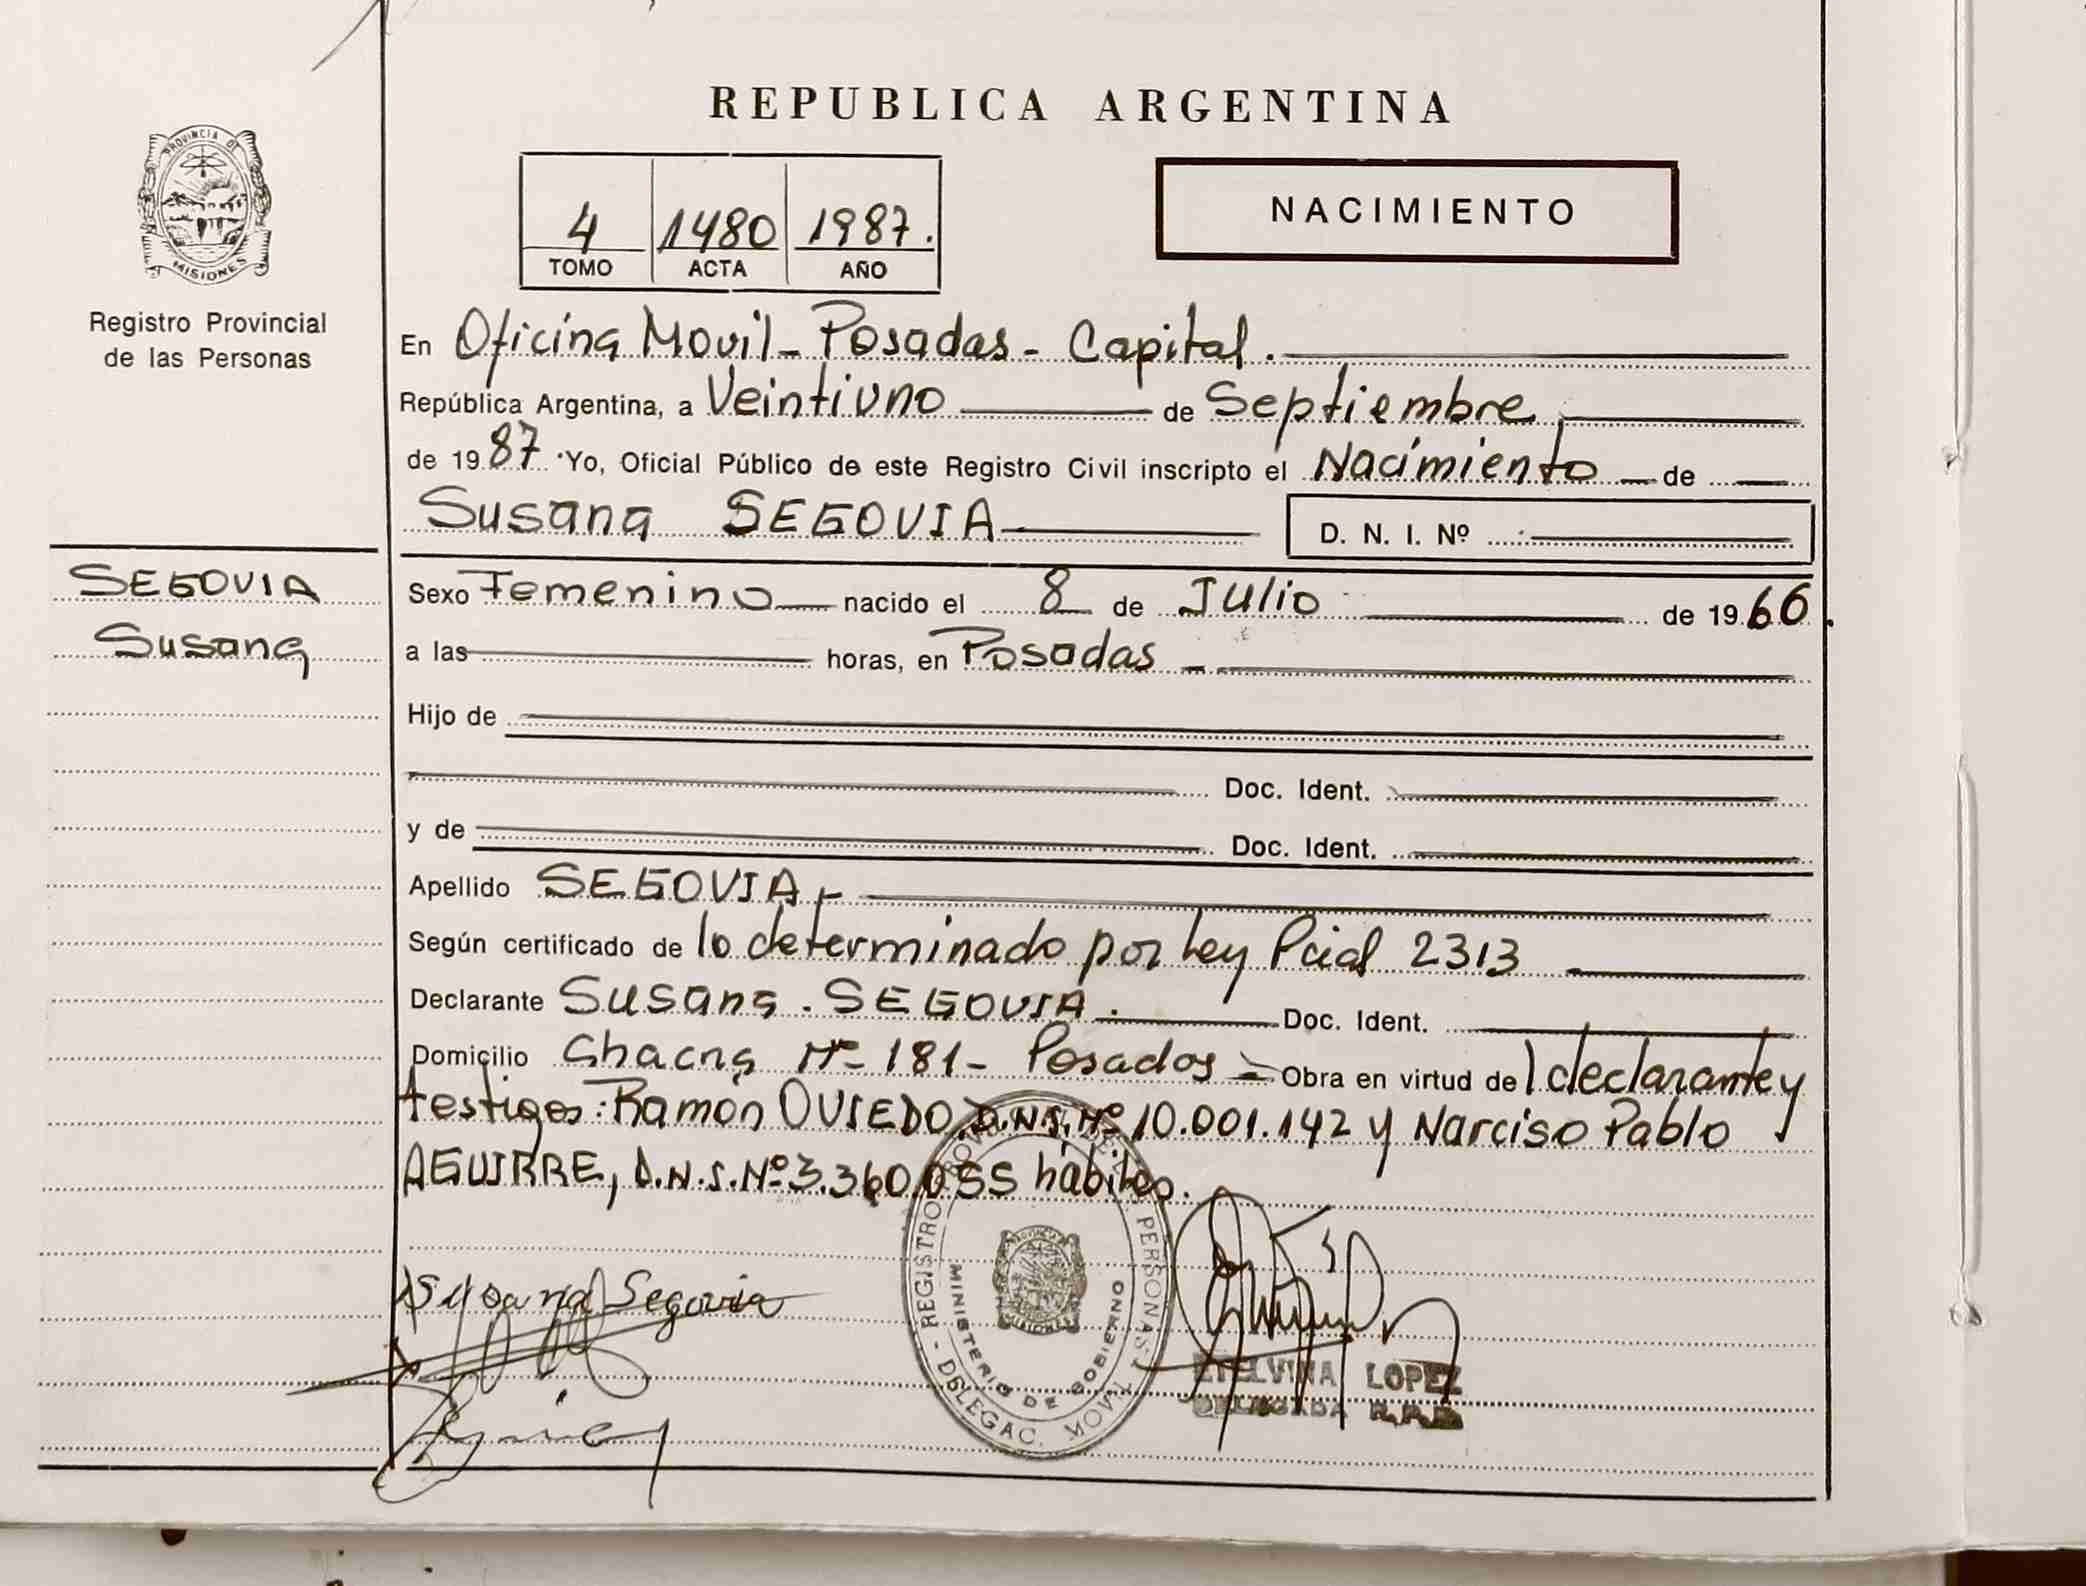 REPUBLICA ARGENTINA
PROVINCIA DE
MISIONES
Registro Provincial
de las Personas
4 1480 1987.
TOMO ACTA AÑO
NACIMIENTO
En Oficina Movil - Posadas - Capital.
República Argentina, a Veintiuno de Septiembre
de 1987 Yo, Oficial Público de este Registro Civil inscripto el Nacimiento de
Susana SEGOVIA D. N. I. Nº
SEGOVIA
Susana
Sexo Femenino nacido el 8 de Julio de 1966.
a las horas, en Posadas
Hijo de
Doc. Ident.
y de Doc. Ident.
Apellido SEGOVIA
Según certificado de lo determinado por Ley Pcial 2313
Declarante Susana . SEGOVIA . Doc. Ident.
Domicilio Chacra Nº 181 - Posadas - Obra en virtud de l declarante y
testigos: Ramón OVIEDO, D.N.I. Nº 10.001.142 y Narciso Pablo
AGUIRRE, D.N.I. Nº 3.360.055 hábiles.
Susana Segovia
REGISTRO PROVINCIAL DE LAS PERSONAS - DELEGAC. MOVIL
MINISTERIO DE GOBIERNO
MISIONES
ETELVINA LOPEZ
DELEGADA R.P.P.